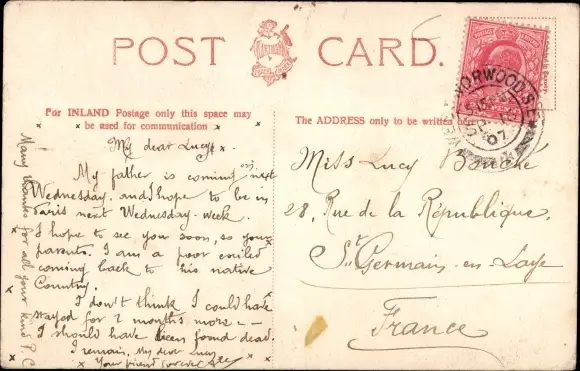 POST CARD.
For INLAND Postage only this space may
be used for communication
The ADDRESS only to be written
WEST NORWOOD S.E.
07
My dear Lucy
My father is coming on next
Wednesday. and I hope to be in
Paris next Wednesday-week.
I hope to see you soon, so your
parents. I am a poor exiled
coming back to his native
Country.
I don't think I could have
stayed for 2 months more --
I should have been found dead.
I remain, My dear Lucy
Your friend for ever
Many thanks for all your kind P.C
Miss Lucy
28, Rue de la République,
St Germain-en Laye
France